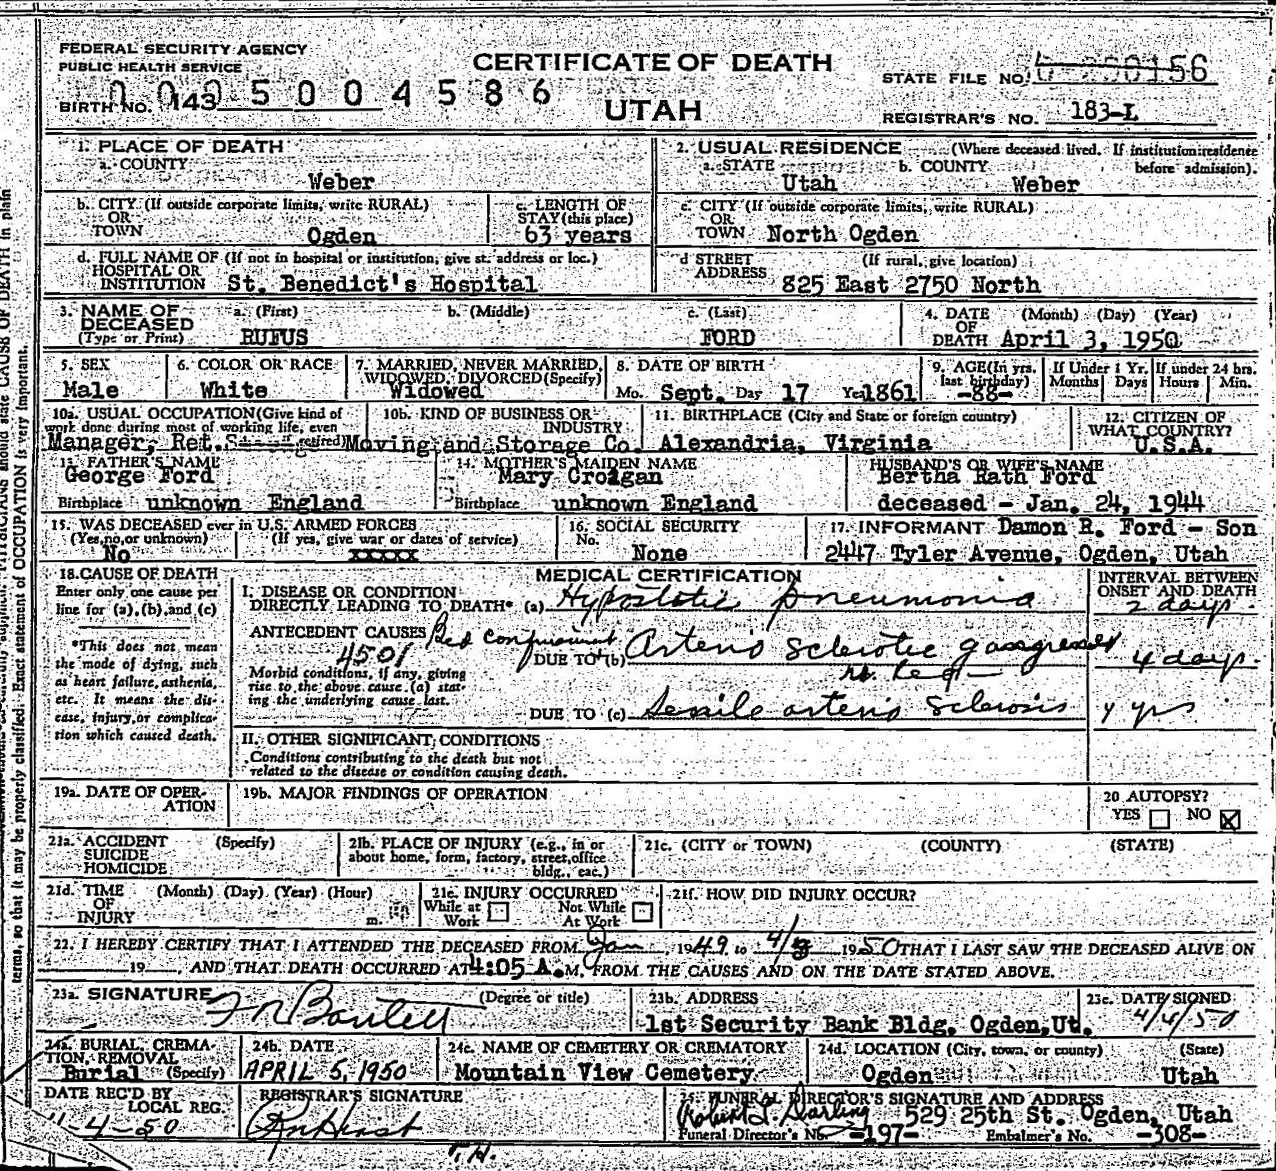 FEDERAL SECURITY AGENCY
PUBLIC HEALTH SERVICE
CERTIFICATE OF DEATH
UTAH
BIRTH NO. 143
005004586
STATE FILE NO.
REGISTRAR'S NO. 183-L
1. PLACE OF DEATH
a. COUNTY
Weber
2. USUAL RESIDENCE (Where deceased lived. If institution: residence before admission).
a. STATE b. COUNTY
Utah Weber
b. CITY (If outside corporate limits, write RURAL)
OR
TOWN Ogden
c. LENGTH OF
STAY (this place)
63 years
c. CITY (If outside corporate limits, write RURAL)
OR
TOWN North Ogden
d. FULL NAME OF (If not in hospital or institution, give st. address or loc.)
HOSPITAL OR
INSTITUTION St. Benedict's Hospital
d STREET (If rural, give location)
ADDRESS 825 East 2750 North
3. NAME OF a. (First) b. (Middle) c. (Last)
DECEASED
(Type or Print) RUFUS FORD
4. DATE (Month) (Day) (Year)
OF
DEATH April 3, 1950
5. SEX
Male
6. COLOR OR RACE
White
7. MARRIED, NEVER MARRIED,
WIDOWED, DIVORCED (Specify)
Widowed
8. DATE OF BIRTH
Mo. Sept. Day 17 Year 1861
9. AGE (In yrs. last birthday)
-88-
If Under 1 Yr.
Months Days
If under 24 hrs.
Hours Min.
10a. USUAL OCCUPATION (Give kind of
work done during most of working life, even
if retired)
Manager, Ret.
10b. KIND OF BUSINESS OR
INDUSTRY
Moving and Storage Co.
11. BIRTHPLACE (City and State or foreign country)
Alexandria, Virginia
12. CITIZEN OF
WHAT COUNTRY?
U.S.A.
13. FATHER'S NAME
George Ford
Birthplace unknown England
14. MOTHER'S MAIDEN NAME
Mary Croigan
Birthplace unknown England
HUSBAND'S OR WIFE'S NAME
Bertha Rath Ford
deceased - Jan. 24, 1944
15. WAS DECEASED ever in U.S. ARMED FORCES
(Yes, no, or unknown) (If yes, give war or dates of service)
No xxxxx
16. SOCIAL SECURITY
No.
None
17. INFORMANT Damon R. Ford - Son
2447 Tyler Avenue, Ogden, Utah
18. CAUSE OF DEATH
Enter only one cause per
line for (a), (b), and (c)
*This does not mean
the mode of dying, such
as heart failure, asthenia,
etc. It means the dis-
ease, injury, or complica-
tion which caused death.
MEDICAL CERTIFICATION
INTERVAL BETWEEN
ONSET AND DEATH
I. DISEASE OR CONDITION
DIRECTLY LEADING TO DEATH* (a) Hypostatic pneumonia 2 days
ANTECEDENT CAUSES Bed confinement
4501
DUE TO (b) Arterio sclerotic gangrene 4 days
rt. leg
Morbid conditions, if any, giving
rise to the above cause (a) stat-
ing the underlying cause last.
DUE TO (c) Senile arterio sclerosis yrs
II. OTHER SIGNIFICANT CONDITIONS
Conditions contributing to the death but not
related to the disease or condition causing death.
19a. DATE OF OPER-
ATION
19b. MAJOR FINDINGS OF OPERATION
20 AUTOPSY?
YES NO X
21a. ACCIDENT (Specify)
SUICIDE
HOMICIDE
21b. PLACE OF INJURY (e.g., in or
about home, form, factory, street, office
bldg., eac.)
21c. (CITY or TOWN) (COUNTY) (STATE)
21d. TIME (Month) (Day) (Year) (Hour)
OF
INJURY m.
21e. INJURY OCCURRED
While at Not While
Work At Work
21f. HOW DID INJURY OCCUR?
22. I HEREBY CERTIFY THAT I ATTENDED THE DECEASED FROM Jan 1949 to 4/3 1950 THAT I LAST SAW THE DECEASED ALIVE ON
19 , AND THAT DEATH OCCURRED AT 4:05 A.M. FROM THE CAUSES AND ON THE DATE STATED ABOVE.
23a. SIGNATURE (Degree or title)
Bartlett
23b. ADDRESS
1st Security Bank Bldg, Ogden, Ut.
23c. DATE SIGNED
4/4/50
24a. BURIAL, CREMA-
TION, REMOVAL
Burial (Specify)
24b. DATE
APRIL 5, 1950
24c. NAME OF CEMETERY OR CREMATORY
Mountain View Cemetery
24d. LOCATION (City, town, or county) (State)
Ogden Utah
DATE REC'D BY
LOCAL REG.
-4-50
REGISTRAR'S SIGNATURE
T.H.
25. FUNERAL DIRECTOR'S SIGNATURE AND ADDRESS
Robert J. Darling 529 25th St. Ogden, Utah
Funeral Director's No. -197- Embalmer's No. -308-
terms, so that it may be properly classified. Exact statement of OCCUPATION is very important.